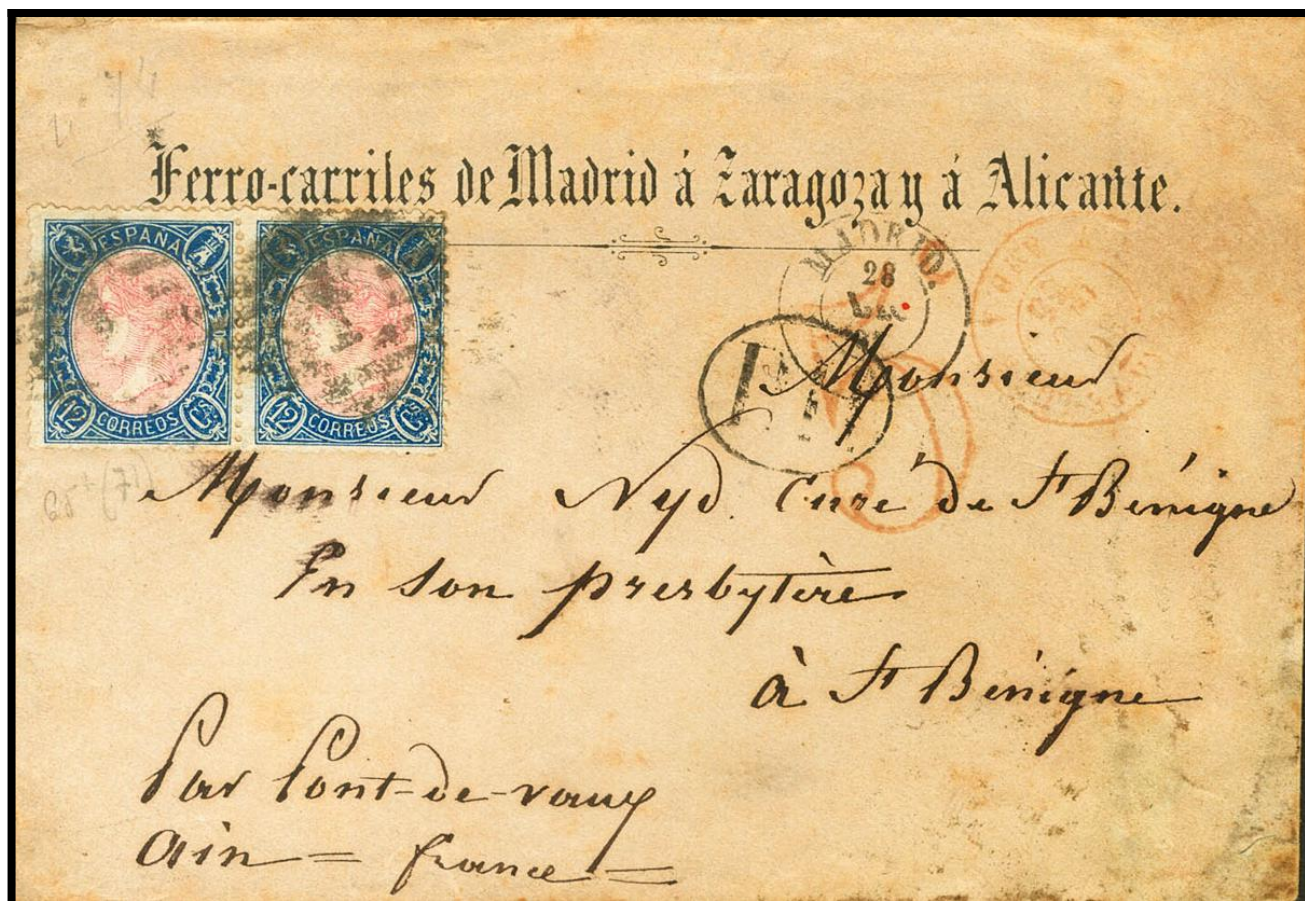 Ferro-carriles de Madrid á Zaragoza y á Alicante.
ESPAÑA
12 CORREOS Cs.
ESPAÑA
12 CORREOS Cs.
MADRID.
28
Monsieur
Monsieur Nyd. Curé de St Bénigne
En son presbytère
à St Bénigne
Par Pont-de-vaux
Ain = france =